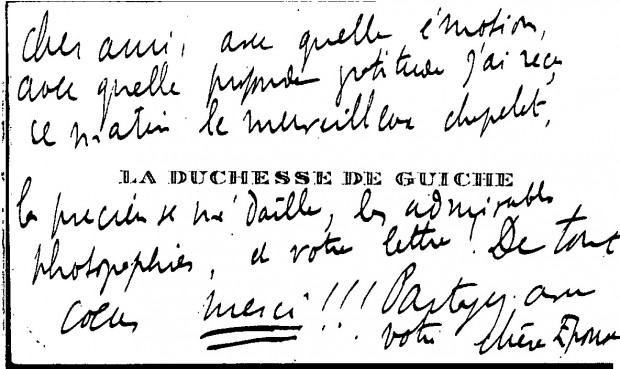 Cher ami, avec quelle émotion,
avec quelle profonde gratitude j'ai reçu
ce matin le merveilleux chapelet,
LA DUCHESSE DE GUICHE
la précieuse médaille, les admirables
photographies, et votre lettre ! De tout
coeur merci !!! Partagez avec
votre chère Epouse